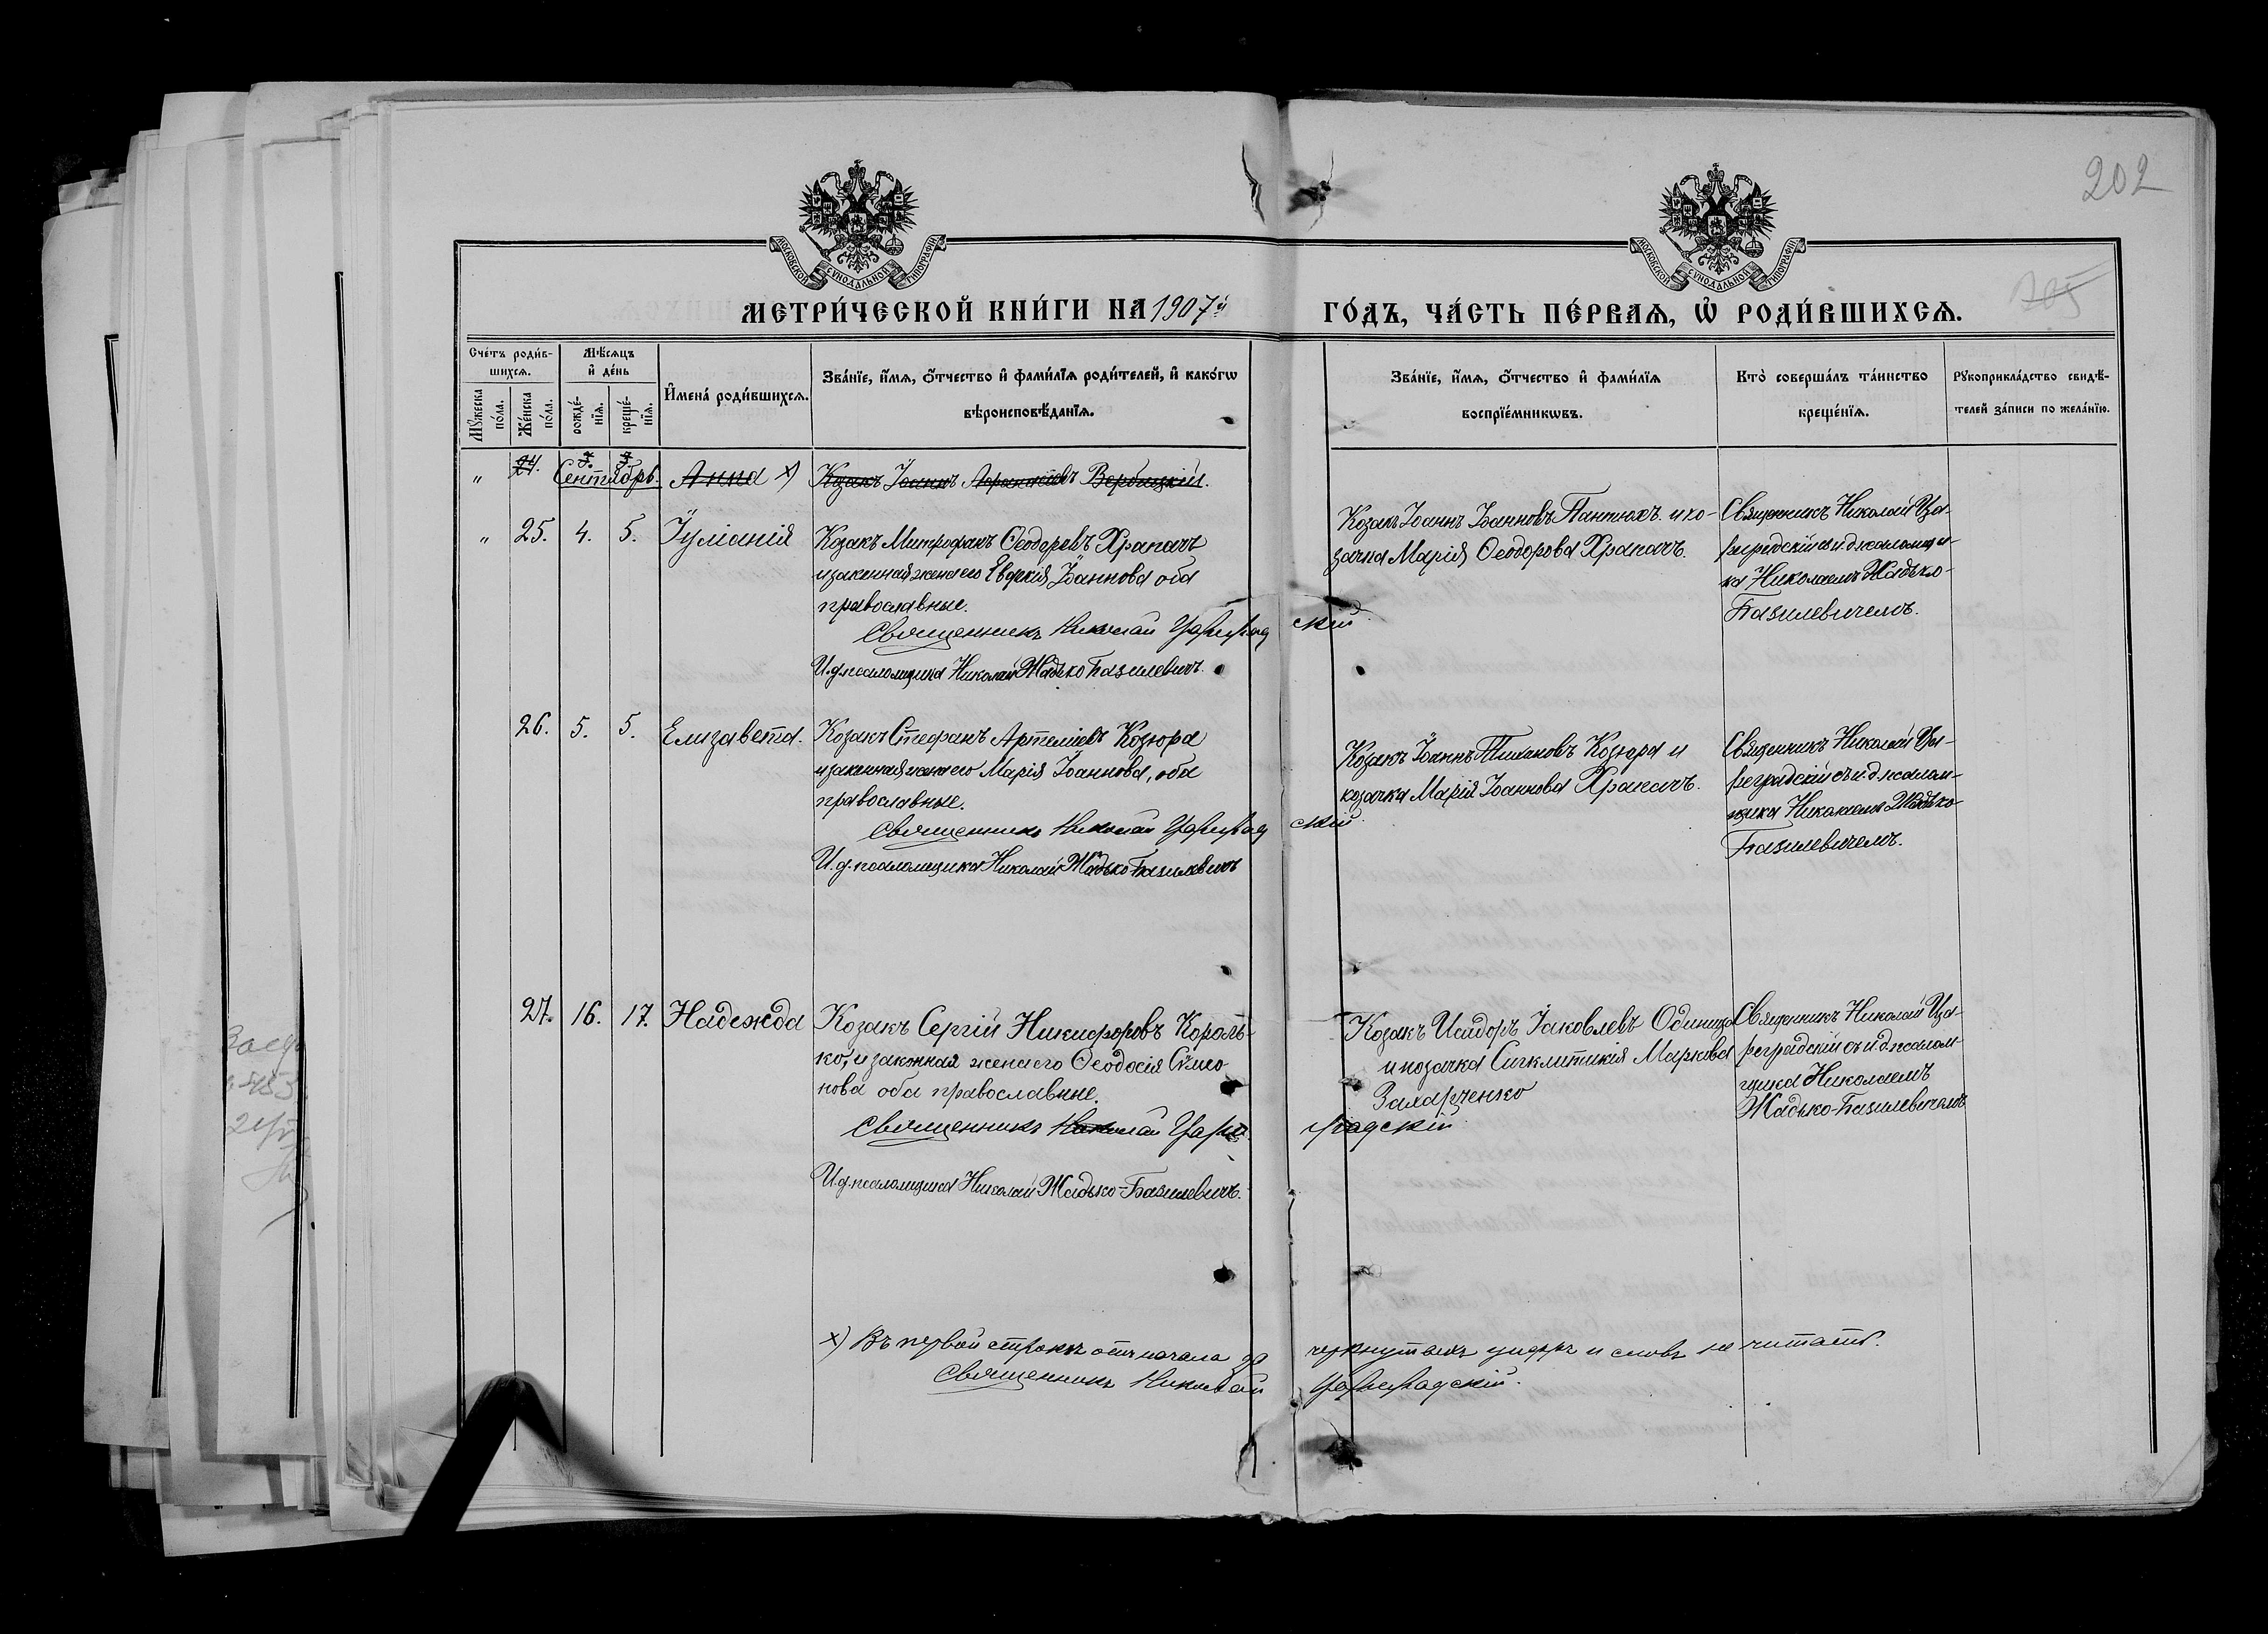 202
МОСКОВСКОЙ СѴНОДАЛЬНОЙ ТИПОГРАФІИ
МОСКОВСКОЙ СѴНОДАЛЬНОЙ ТИПОГРАФІИ
МЕТРИ́ЧЕСКОЙ КНИ́ГИ НА 1907й
ГО́ДЪ, ЧА́СТЬ ПЕ́РВАѦ, Ѡ҆ РОДИ́ВШИХСѦ.
205
Сче́тъ роди́в-
шихсѧ.
Мꙋжеска по́ла.
Же́нска по́ла.
Мѣ́сѧцъ
и҆ де́нь
рожде́-
нїѧ.
креще́-
нїѧ.
И҆мена̀ роди́вшихсѧ.
Зва́нїе, и҆́мѧ, ѻ҆́тчество и҆ фамі́лїѧ роди́телей, и҆ како́гѡ
вѣроисповѣ́данїѧ.
Зва́нїе, и҆́мѧ, ѻ҆́тчество и҆ фамі́лїѧ
воспрїе́мникѡвъ.
Кто̀ соверша́лъ та́инство
креще́нїѧ.
Рꙋкоприкла́дство свидѣ́-
телей за́писи по жела́нїю.
" 24. Сентябрь. Анна х) Козакъ Іоаннъ Вербицкій.
" 25. 4. 5. Іуліанія
Козакъ Митрофанъ Ѳеодоровъ Храпачъ
и законная жена его Евдокія Іоаннова оба
православные.
Священникъ Николай Цареградскій
И. д. псаломщика Николай Жадько Базилевичъ.
Козакъ Іоаннъ Іоанновъ Пантюхъ и ко-
зачка Марія Ѳеодорова Храпачъ.
Священникъ Николай Ца-
реградскій съ и. д. псаломщи-
ка Николаемъ Жадько-
Базилевичемъ.
26. 5. 5. Елизавета.
Козакъ Стефанъ Артеміевъ Козюра
и законная жена его Марія Іоаннова, оба
православные.
Священникъ Николай Цареградскій
И. д. псаломщика Николай Жадько Базилевичъ
Козакъ Іоаннъ Козюра и
козачка Марія Іоаннова Храпачъ.
Священникъ Николай Ца-
реградскій съ и. д. псалом-
щика Николаемъ Жадько
Базилевичемъ.
27. 16. 17. Надежда
Козакъ Сергій Никифоровъ Король-
ко, и законная жена его Ѳеодосія Сѵмео
нова оба православные.
Священникъ Николай Цареградскій
И. д. псаломщика Николай Жадько-Базилевичъ.
Козакъ Исидоръ Іаковлевъ Одинцо
и козачка Сигклитикія Маркова
Захарченко
Священникъ Николай Ца-
реградскій съ и. д. псалом-
щика Николаемъ
Жадько-Базилевичемъ
х) Въ первой строкѣ отъ начала зачеркнутыхъ цифръ и словъ не читать.
Священникъ Николай Цареградскій.